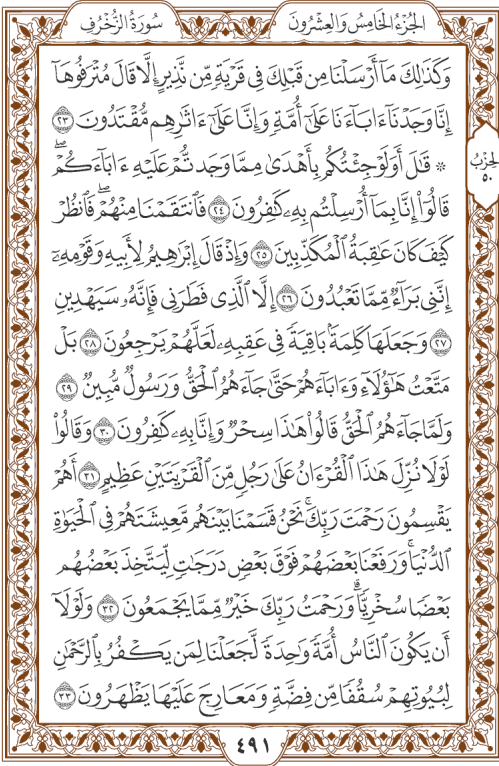 الجُزْءُ الخَامِسُ وَالعِشْرُونَ
سُورَةُ الزُّخْرُفِ
وَكَذَٰلِكَ مَآ أَرْسَلْنَا مِن قَبْلِكَ فِي قَرْيَةٖ مِّن نَّذِيرٍ إِلَّا قَالَ مُتْرَفُوهَآ
إِنَّا وَجَدْنَآ ءَابَآءَنَا عَلَىٰٓ أُمَّةٖ وَإِنَّا عَلَىٰٓ ءَاثَٰرِهِم مُّقْتَدُونَ ٢٣
۞ قَٰلَ أَوَلَوْ جِئْتُكُم بِأَهْدَىٰ مِمَّا وَجَدتُّمْ عَلَيْهِ ءَابَآءَكُمْۖ
قَالُوٓاْ إِنَّا بِمَآ أُرْسِلْتُم بِهِۦ كَٰفِرُونَ ٢٤ فَٱنتَقَمْنَا مِنْهُمْۖ فَٱنظُرْ
كَيْفَ كَانَ عَٰقِبَةُ ٱلْمُكَذِّبِينَ ٢٥ وَإِذْ قَالَ إِبْرَٰهِيمُ لِأَبِيهِ وَقَوْمِهِۦٓ
إِنَّنِي بَرَآءٞ مِّمَّا تَعْبُدُونَ ٢٦ إِلَّا ٱلَّذِي فَطَرَنِي فَإِنَّهُۥ سَيَهْدِينِ
٢٧ وَجَعَلَهَا كَلِمَةَۢ بَاقِيَةٗ فِي عَقِبِهِۦ لَعَلَّهُمْ يَرْجِعُونَ ٢٨ بَلْ
مَتَّعْتُ هَٰٓؤُلَآءِ وَءَابَآءَهُمْ حَتَّىٰ جَآءَهُمُ ٱلْحَقُّ وَرَسُولٞ مُّبِينٞ ٢٩
وَلَمَّا جَآءَهُمُ ٱلْحَقُّ قَالُواْ هَٰذَا سِحْرٞ وَإِنَّا بِهِۦ كَٰفِرُونَ ٣٠ وَقَالُواْ
لَوْلَا نُزِّلَ هَٰذَا ٱلْقُرْءَانُ عَلَىٰ رَجُلٖ مِّنَ ٱلْقَرْيَتَيْنِ عَظِيمٍ ٣١ أَهُمْ
يَقْسِمُونَ رَحْمَتَ رَبِّكَۚ نَحْنُ قَسَمْنَا بَيْنَهُم مَّعِيشَتَهُمْ فِي ٱلْحَيَوٰةِ
ٱلدُّنْيَاۚ وَرَفَعْنَا بَعْضَهُمْ فَوْقَ بَعْضٖ دَرَجَٰتٖ لِّيَتَّخِذَ بَعْضُهُم
بَعْضٗا سُخْرِيّٗاۗ وَرَحْمَتُ رَبِّكَ خَيْرٞ مِّمَّا يَجْمَعُونَ ٣٢ وَلَوْلَآ
أَن يَكُونَ ٱلنَّاسُ أُمَّةٗ وَٰحِدَةٗ لَّجَعَلْنَا لِمَن يَكْفُرُ بِٱلرَّحْمَٰنِ
لِبُيُوتِهِمْ سُقُفٗا مِّن فِضَّةٖ وَمَعَارِجَ عَلَيْهَا يَظْهَرُونَ ٣٣
الحِزْبُ
٥٠
٤٩١